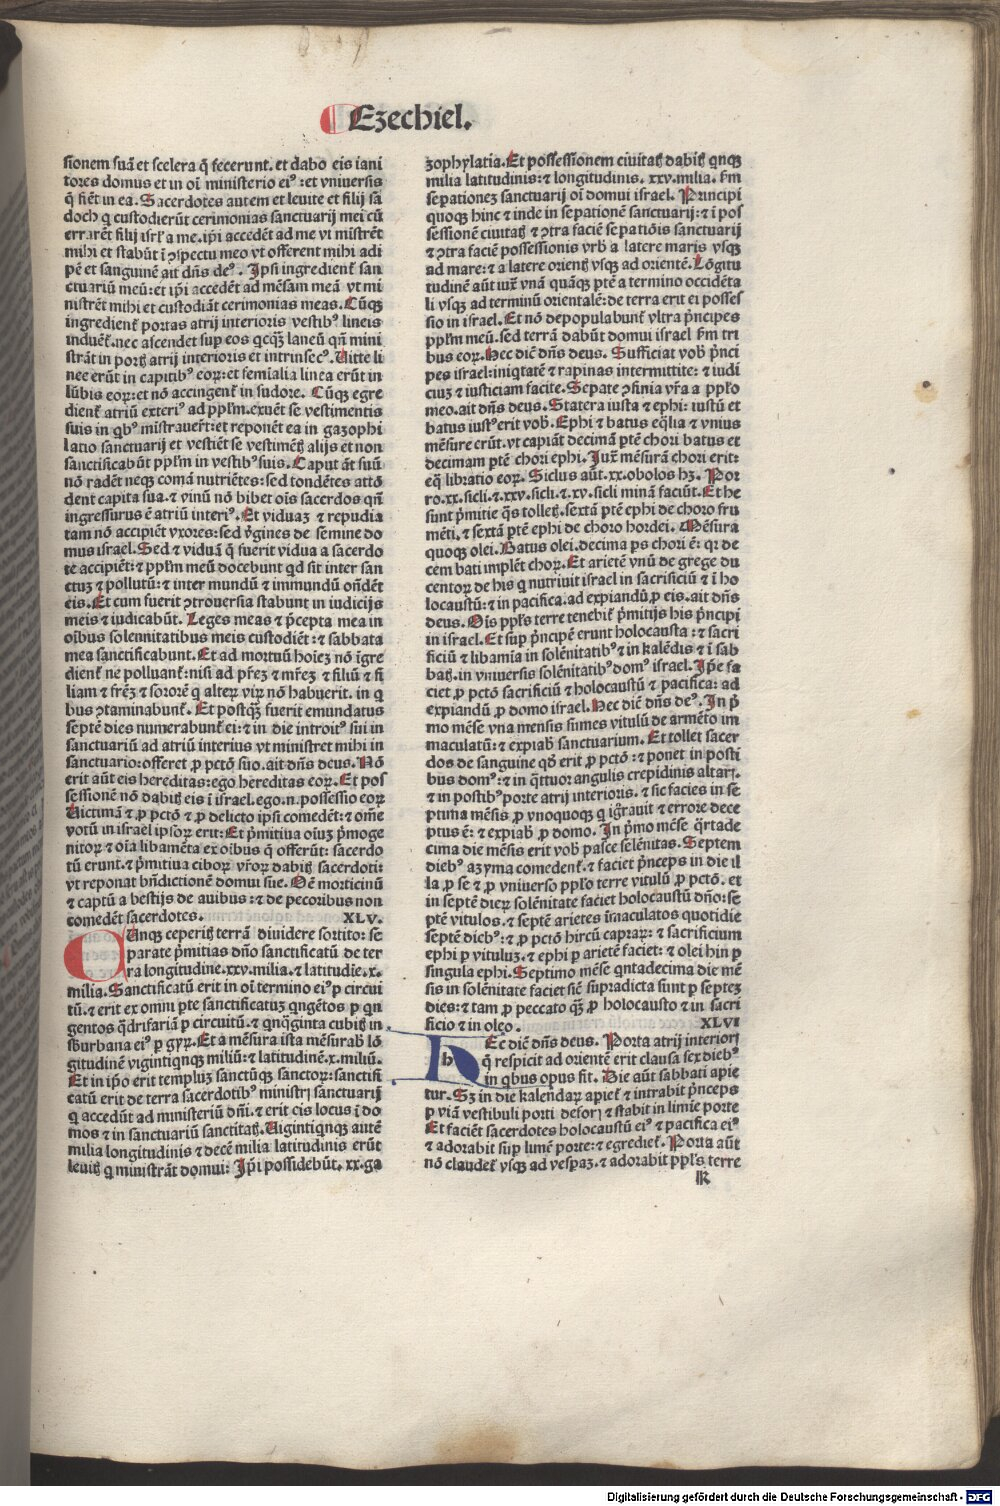 Ezechiel.
sionem suā et scelera q̄ fecerunt. et dabo eis iani
tores domus et in oī ministerio eiꝰ : et vniuersis
q̄ fiēt in ea. Sacerdotes autem et leuite et filij sa
doch q custodierūt cerimonias sanctuarij mei cū
errarēt filij isrl̄'a me. ip̄i accedēt ad me vt mīstrēt
mihi et stabūt ī ꝯspectu meo vt offerent mihi adi
pē et sanguinē ait dn̄s deꝰ. Ipsi ingredient̄ san
ctuariū meū: et ip̄i accedēt ad mēsam meā vt mi
nistrēt mihi et custodiāt cerimonias meas. Cūqꝫ
ingredient̄ portas atrij interioris vestibꝰ lineis
induēt̄. nec ascendet sup eos qcqꝫ laneū qn̄ mini
strāt in portꝭ atrij interioris et intrinsecꝰ. Uitte li
nee erūt in capitibꝰ eoꝝ: et femialia linea erūt in
lūbis eoꝝ: et nō accingent̄ in sudore. Cūqꝫ egre
dient̄ atriū exteriꝰ ad ppl̄m. exuēt se vestimentis
suis in qbꝰ mīstrauerāt: et reponēt ea in gazophi
latio sanctuarij et vestiēt se vestimētꝭ alijs et non
sanctificabūt ppl̄m in vestibꝰ suis. Caput āt suū
nō radēt neqꝫ comā nutriētes: sed tondētes attō
dent capita sua. ⁊ vinū nō bibet oīs sacerdos qn̄
ingressurus ē atriū interiꝰ. Et viduaꝫ ⁊ repudia
tam nō accipiēt vxores: sed v̄gines de semine do
mus israel. Sed ⁊ viduā q̄ fuerit vidua a sacerdo
te accipiēt: ⁊ ppl̄m meū docebunt qd sit inter san
ctuꝫ ⁊ pollutū: ⁊ inter mundū ⁊ immundū on̄dēt
eis. Et cum fuerit ꝯtrouersia stabunt in iudicijs
meis ⁊ iudicabūt. Leges meas ⁊ p̄cepta mea in
oībus solennitatibus meis custodiēt: ⁊ sabbata
mea sanctificabunt. Et ad mortuū hoīeꝫ nō īgre
dient̄ ne polluant̄: nisi ad pr̄eꝫ ⁊ mr̄eꝫ ⁊ filiū ⁊ fi
liam ⁊ fr̄eꝫ ⁊ sororē q alteꝝ viꝝ nō habuerit. in q
bus ꝯtaminabunt̄. Et postqꝫ̄ fuerit emundatus
septē dies numerabunt̄ ei: ⁊ in die introitꝰ sui in
sanctuariū ad atriū interius vt ministret mihi in
sanctuario: offeret ꝓ pctō suo. ait dn̄s deus. Nō
erit aūt eis hereditas: ego hereditas eoꝝ. Et pos
sessionē nō dabitꝭ eis ī israel. ego.n. possessio eoꝝ
Uictimā ⁊ ꝓ pctō ⁊ ꝓ delicto ipsi comedēt: ⁊ om̄e
votū in israel ipsoꝝ erit: Et p̄mitiua oīuꝫ p̄moge
nitoꝝ ⁊ oīa libamēta ex oībus q̄ offerūt: sacerdo
tū erunt. ⁊ p̄mitiua ciboꝝ vr̄oꝝ dabitꝭ sacerdoti:
vt reponat bn̄dictionē domui sue. Oē morticinū
⁊ captū a bestijs de auibus: ⁊ de pecoribus non
comedēt sacerdotes. XLV.
CUnqꝫ ceperitꝭ terrā diuidere sortito: se
parate p̄mitias dn̄o sanctificatū de ter
ra longitudine. xxv. milia. ⁊ latitudīe. x.
milia. Sanctificatū erit in oī termino eiꝰ p circui
tū. ⁊ erit ex omni pte sanctificatuꝫ qngētos p qn
gentos q̄drifariā p circuitū. ⁊ qnq̄ginta cubitꝭ in
sb̄urbana eiꝰ p gyꝝ. Et a mēsura ista mēsurabꝭ lō
gitudinē vigintiqnqꝫ miliū: ⁊ latitudinē. x. miliū.
Et in ip̄o erit templuꝫ sanctūqꝫ sanctoꝝ: sanctifi
catū erit de terra sacerdotibꝰ ministrꝭ sanctuarij
q accedūt ad ministeriū dn̄i. ⁊ erit eis locus ī do
mos ⁊ in sanctuariū sanctitatꝭ. Uigintiqnqꝫ autē
milia longitudinis ⁊ decē milia latitudinis erūt
leuitꝭ q ministrāt domui: Ip̄i possidebūt. xx. ga
zophylatia. Et possessionem ciuitatꝭ dabitꝭ qnqꝫ
milia latitudinis: ⁊ longitudinis. xxv. milia. ẜm
sepationeꝫ sanctuarij oī domui israel. Principi
quoqꝫ hinc ⁊ inde in sepationē sanctuarij: ⁊ ī pos
sessionē ciuitatꝭ ⁊ ꝯtra faciē sepatiōis sanctuarij
⁊ ꝯtra faciē possessionis vrb̄ a latere maris vsqꝫ
ad mare: ⁊ a latere orientꝭ vsqꝫ ad orientē. Lōgitu
tudinē aūt iux̄ vnā quāqꝫ ptē a termino occidēta
li vsqꝫ ad terminū orientalē: de terra erit ei posses
sio in israel. Et nō depopulabunt̄ vltra p̄ncipes
ppl̄m meū. sed terrā dabūt domui israel ẜm tri
bus eoꝝ. Hec dic̄ dn̄s deus. Sufficiat vob̄ p̄nci
pes israel: iniqtatē ⁊ rapinas intermittite: ⁊ iudi
ciuꝫ ⁊ iusticiam facite. Sepate ꝯfinia vr̄a a pplō
meo. ait dn̄s deus. Statera iusta ⁊ ephi: iustū et
batus iustꝰ erit vob̄. Ephi ⁊ batus eq̄lia ⁊ vnius
mēsure erūt. vt capiāt decimā ptē chori batus et
decimam ptē chori ephi. Iux̄ mēsurā chori erit:
eq̄ libratio eoꝝ. Siclus aūt. xx. obolos hꝫ. Por
ro. xx. sicli. ⁊. xxv. sicli. ⁊. xv. sicli minā faciūt. Et he
sunt p̄mitie q̄s tolletꝭ. sextā ptē ephi de choro fru
mēti. ⁊ sextā ptē ephi de choro hordei. Mēsura
quoqꝫ olei. Batus olei. decima ps chori ē: qꝛ de
cem bati implēt choꝝ. Et arietē vnū de grege du
centoꝝ de his q nutriuit israel in sacrificiū ⁊ ī ho
locaustū: ⁊ in pacifica. ad expiandū ꝓ eis. ait dn̄s
deus. Oīs ppl̄s terre tenebit̄ p̄mitijs his p̄ncipi
in israel. Et sup p̄ncipē erunt holocausta: ⁊ sacri
ficiū ⁊ libamia in solēnitatibꝰ ⁊ in kalēdis ⁊ ī sab
batꝭ. in vniuersis solēnitatibꝰ domꝰ israel. Ip̄e fa
ciet ꝓ pctō sacrificiū ⁊ holocaustū ⁊ pacifica: ad
expiandū ꝓ domo israel. Hec dic̄ dn̄s deꝰ. In p̄
mo mēse vna mensis sumes vitulū de armēto im
maculatū: ⁊ expiab̄ sanctuarium. Et tollet sacer
dos de sanguine qd̄ erit ꝓ pctō: ⁊ ponet in posti
bus domꝰ: ⁊ in q̄ttuor angulis crepidinis altarꝭ.
⁊ in postibꝰ porte atrij interioris. ⁊ sic facies in se
ptima mēsis ꝓ vnoquoqꝫ q ig̊rauit ⁊ errore dece
ptus ē: ⁊ expiab̄ ꝓ domo. In p̄mo mēse q̄rtade
cima die mēsis erit vob̄ pasce solēnitas. Septem
diebꝰ azyma comedent̄. ⁊ faciet p̄nceps in die il
la ꝓ se ⁊ ꝓ vniuerso pplō terre vitulū ꝓ pctō. et
in septē dieꝝ solēnitate faciet holocaustū dn̄o: se
ptē vitulos. ⁊ septē arietes īmaculatos quotidie
septē diebꝰ: ⁊ ꝓ pctō hircū capraꝝ: ⁊ sacrificium
ephi p vituluꝫ. ⁊ ephi p arietē faciet: ⁊ olei hin p
singula ephi. Septimo mēse qntadecima die mē
sis in solēnitate faciet sic̄ supradicta sunt p septeꝫ
dies: ⁊ tam ꝓ peccato qꝫ̄ ꝓ holocausto ⁊ in sacri
ficio ⁊ in oleo. XLVI
HEc dic̄ dn̄s deus. Porta atrij interiorꝭ
q̄ respicit ad orientē erit clausa sex diebꝰ
in qbus opus fit. Die aūt sabbati apie
tur. Sꝫ in die kalendaꝝ apiet̄ ⁊ intrabit p̄nceps
p viā vestibuli porti deforꝭ ⁊ stabit in limīe porte
Et faciēt sacerdotes holocaustū eiꝰ ⁊ pacifica eiꝰ
⁊ adorabit sup limē porte: ⁊ egrediet̄. Porta aūt
nō claudet̄ vsqꝫ ad vespaꝫ. ⁊ adorabit ppl̄s terre
K
Digitalisierung gefördert durch die Deutsche Forschungsgemeinschaft - DFG